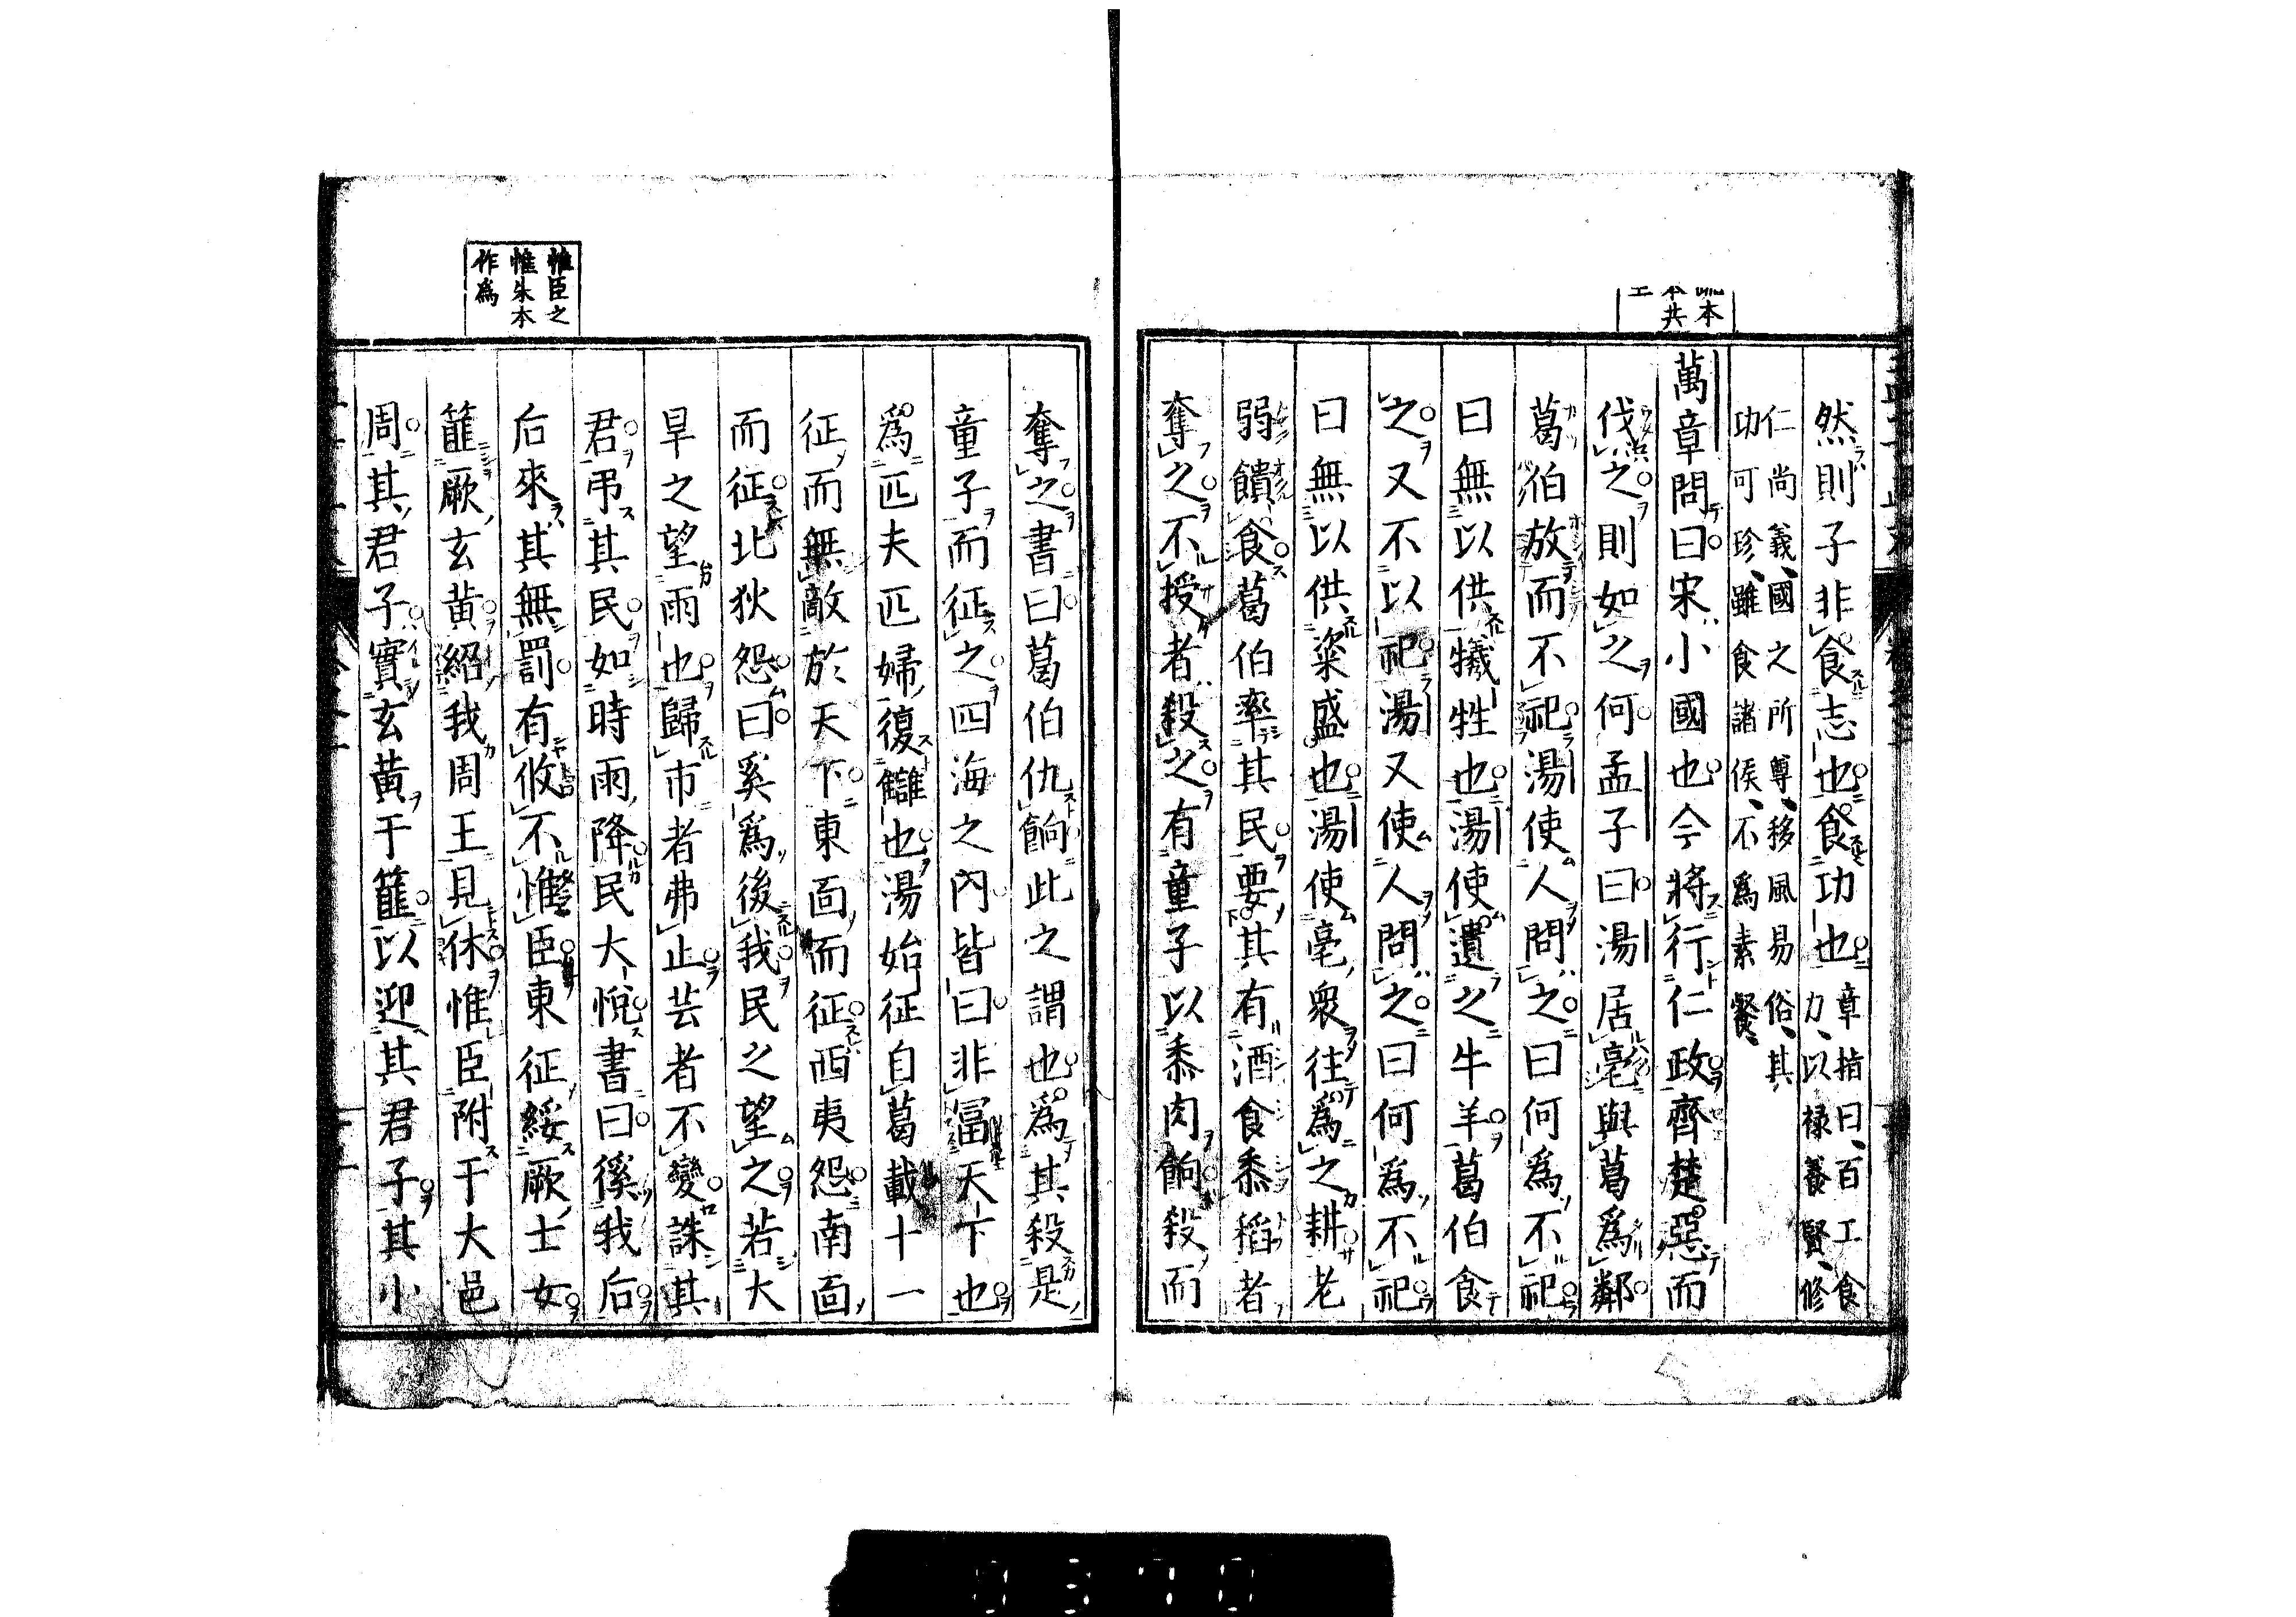 本
本共
然則子非食志也食功也章指曰百工食
力以禄養賢修
仁尚義國之所尊移風易俗其
功可珍雖食諸侯不爲素餐
萬章問曰宋小國也今將行仁政齊楚惡而
伐之則如之何孟子曰湯居亳與葛爲鄰
葛伯放而不祀湯使人問之曰何爲不祀
曰無以供犧牲也湯使遺之牛羊葛伯食
之又不以祀湯又使人問之曰何爲不祀
曰無以供粢盛也湯使亳衆往爲之耕老
弱饋食葛伯率其民要其有酒食黍稻者
奪之不授者殺之有童子以黍肉餉殺而
奪之書曰葛伯仇餉此之謂也爲其殺是
童子而征之四海之內皆曰非富天下也
爲匹夫匹婦復讎也湯始征自葛載十一
征而無敵於天下東面而征西夷怨南面
而征北狄怨曰奚爲後我民之望之若大
旱之望雨也歸市者弗止芸者不變誅其
君弔其民如時雨降民大悅書曰徯我后
后來其無罰有攸不惟臣東征綏厥士女
篚厥玄黃紹我周王見休惟臣附于大邑
周其君子實玄黃于篚以迎其君子其小
惟臣之
惟朱本
作爲
0370